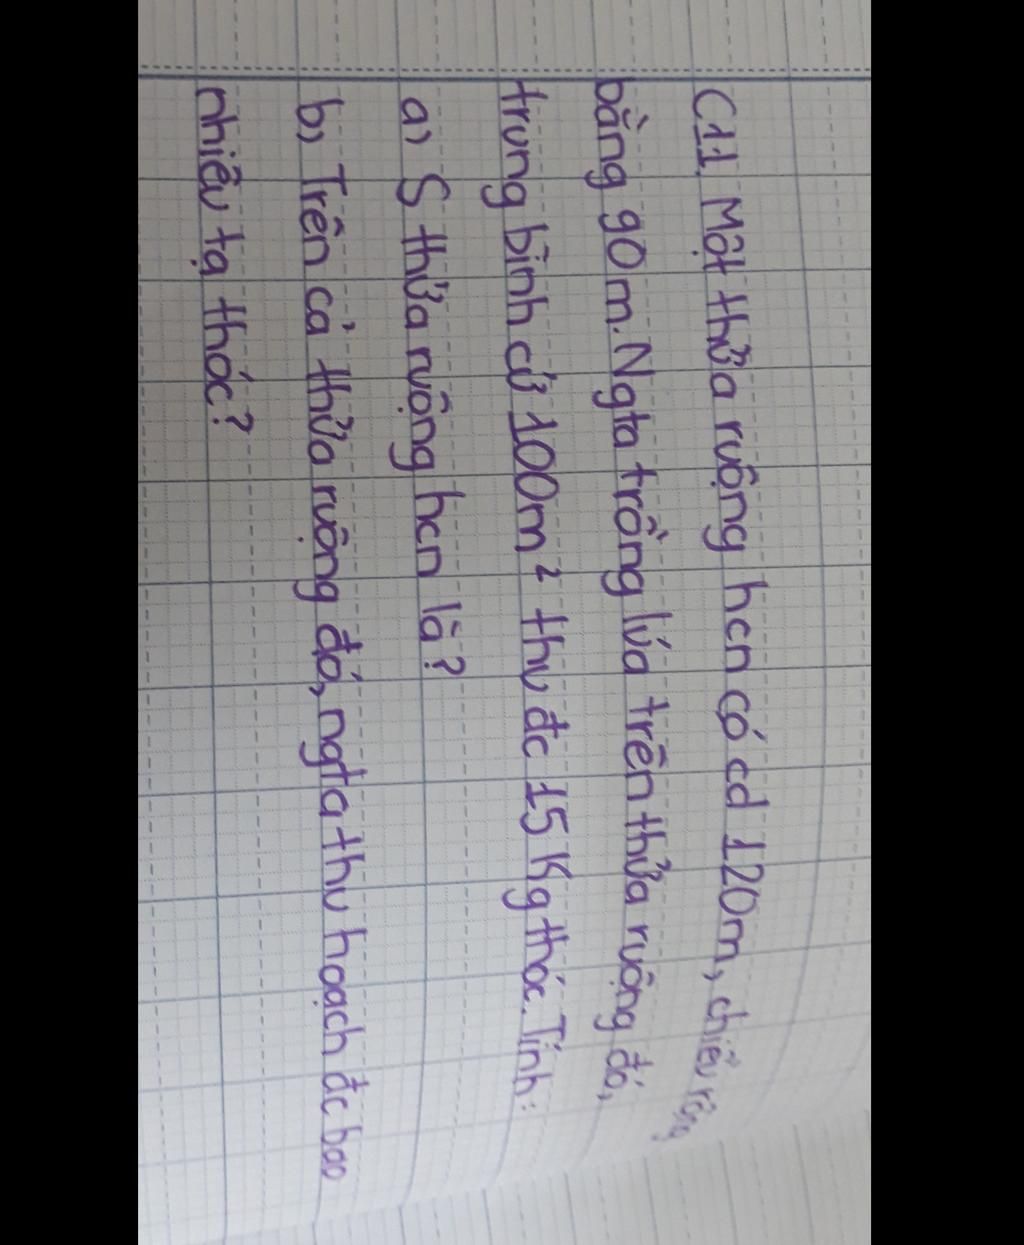 C11. Một thửa ruộng hcn có cd 120m, chiều rộng
bằng 90m. Ngta trồng lúa trên thửa ruộng đó,
trung bình cứ 100m² thu đc 15 kg thóc. Tính:
a) S thửa ruộng hcn là?
b) Trên cả thửa ruộng đó, ngta thu hoạch đc bao
nhiêu tạ thóc?